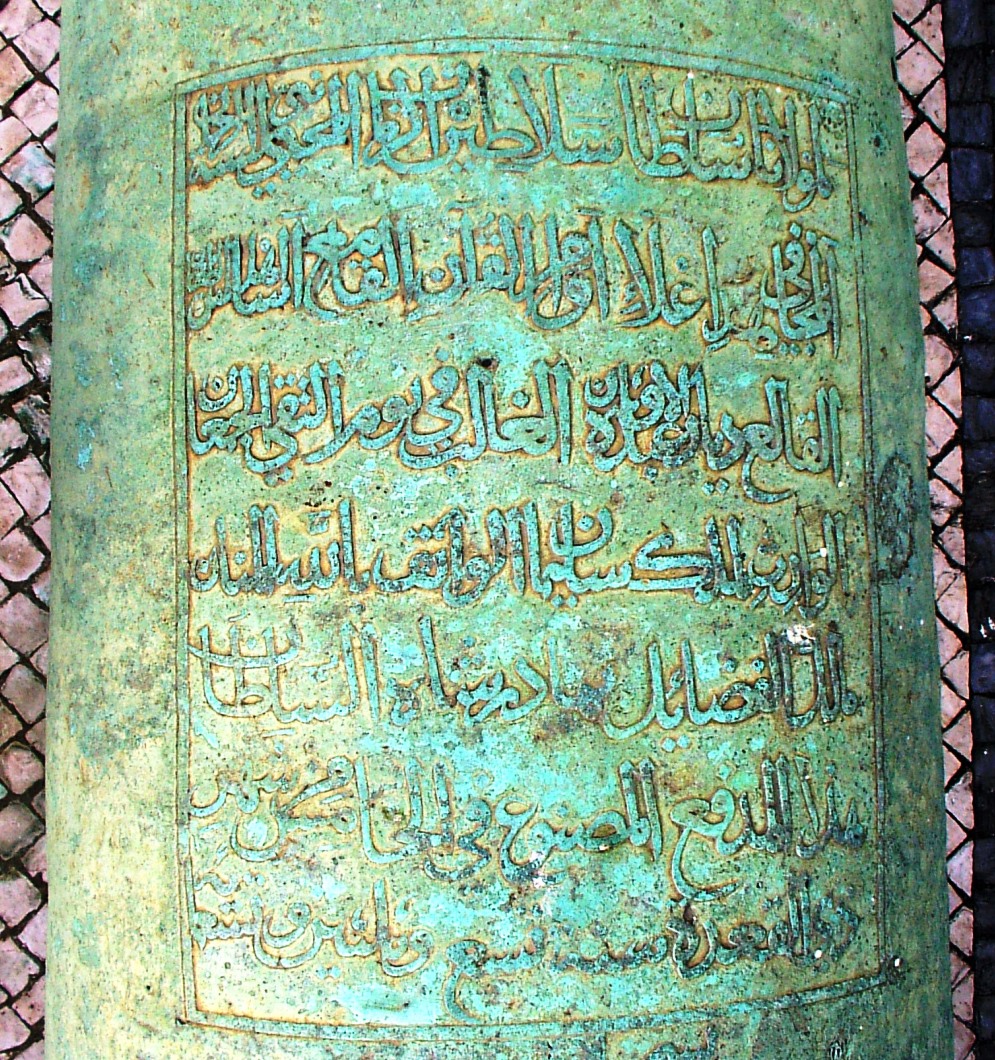 مولانا سلطان سلاطين الزمان المحيي لسنة الرحمن
المجاهد في اعلاء اوامر القرآن القامع لاساس
القالع ديار عبدة الاوثان الغالب في يوم التقى الجمعان
الوارث لملك سليمان الواثق بالله المنان
ملك الفضايل بهادر شاه السلطان
هذا المدفع المصنوع في الخامس من شهر
ذي القعدة سنة تسع وثلثين وتسعمائة